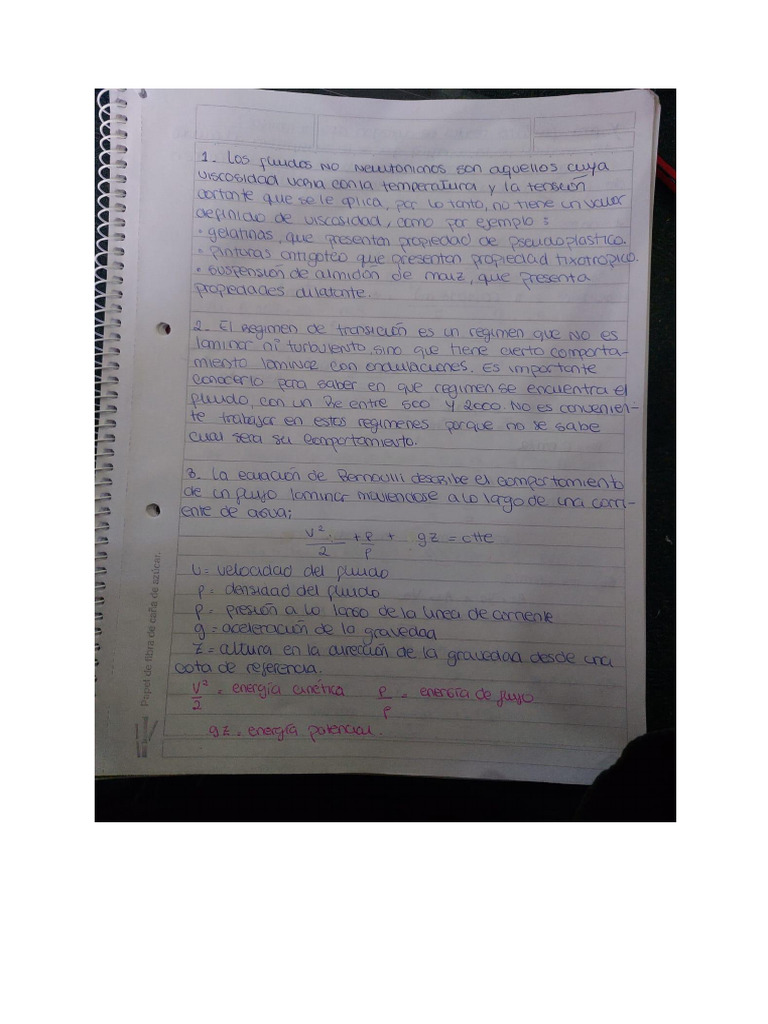 1. Los fluidos NO Newtonianos son aquellos cuya
viscosidad varia con la temperatura y la tensión
cortante que se le aplica, por lo tanto, no tiene un valor
definido de viscosidad, como por ejemplo:
• gelatinas, que presentan propiedad de pseudoplastico.
• pinturas antigoteo que presentan propiedad tixotrópico.
• suspensión de almidón de maiz, que presenta
propiedades dilatante.
2. El Regimen de transición es un regimen que NO es
laminar ni turbulento, sino que tiene cierto comporta-
miento laminar con ondulaciones. Es importante
conocerlo para saber en que regimen se encuentra el
fluido, con un Re entre 500 y 2000. No es convenien-
te trabajar en estos regimenes porque no se sabe
cual sera su comportamiento.
3. La ecuación de Bernoulli describe el comportamiento
de un flujo laminar moviendose a lo largo de una corri-
ente de agua;
V²/2 + P/ρ + gz = ctte
V = velocidad del fluido
ρ = densidad del fluido
P = presión a lo largo de la linea de corriente
g = aceleración de la gravedad
z = altura en la dirección de la gravedad desde una
cota de referencia.
V²/2 = energía cinética P/ρ = energía de flujo
gz = energía potencial.
Papel de fibra de caña de azúcar.